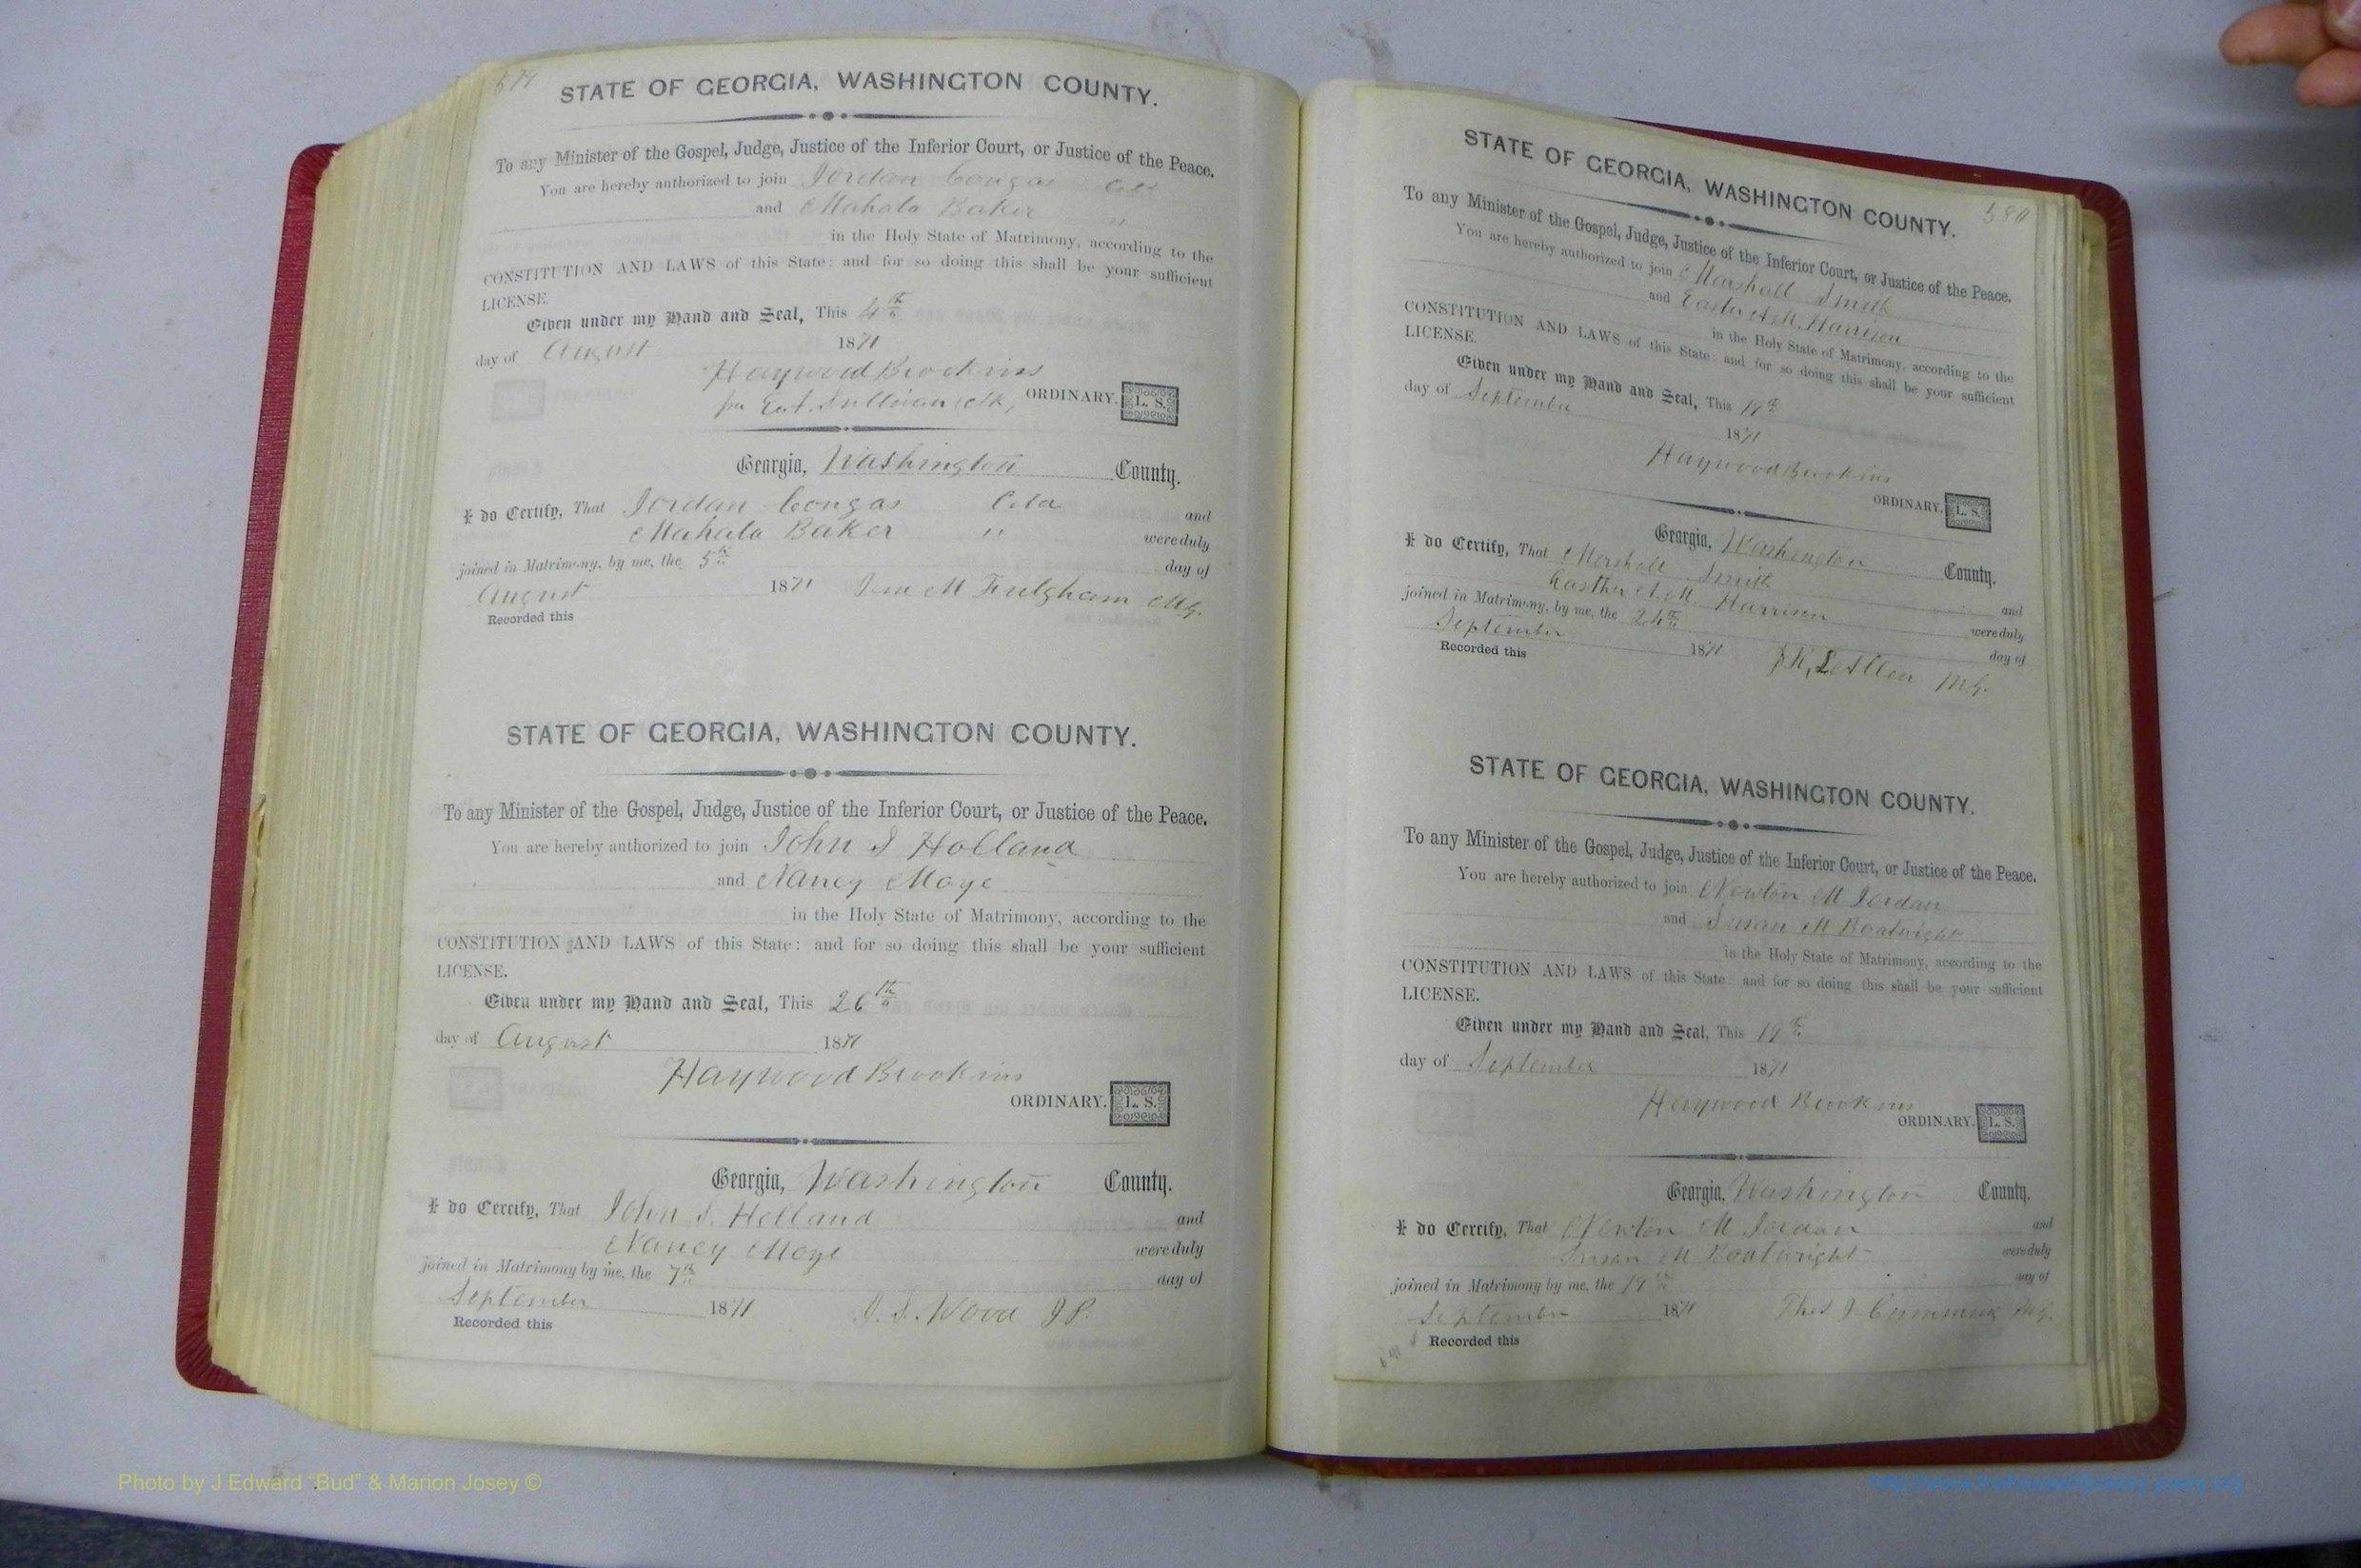 579
STATE OF GEORGIA, WASHINGTON COUNTY.
To any Minister of the Gospel, Judge, Justice of the Inferior Court, or Justice of the Peace.
You are hereby authorized to join Jordan Congas Cold
and Mahala Baker "
in the Holy State of Matrimony, according to the
CONSTITUTION AND LAWS of this State: and for so doing this shall be your sufficient
LICENSE.
Given under my Hand and Seal, This 4th
day of August 1871
Haywood Brookins
ORDINARY. L. S.
Sullivan Clk,
Georgia, Washington County.
I do Certify, That Jordan Congas Cold and
Mahala Baker " were duly
joined in Matrimony, by me, the 5th day of
August 1871 M Fulgham MG.
Recorded this
STATE OF GEORGIA, WASHINGTON COUNTY.
To any Minister of the Gospel, Judge, Justice of the Inferior Court, or Justice of the Peace.
You are hereby authorized to join John S Holland
and Nancy Moye
in the Holy State of Matrimony, according to the
CONSTITUTION AND LAWS of this State: and for so doing this shall be your sufficient
LICENSE.
Given under my Hand and Seal, This 26th
day of August 1871
Haywood Brookins
ORDINARY. L. S.
Georgia, Washington County.
I do Cercify, That John S. Holland and
Nancy Moye were duly
joined in Matrimony by me, the 7th day of
September 1871 J. S. Wood J P.
Recorded this
580
STATE OF GEORGIA, WASHINGTON COUNTY.
To any Minister of the Gospel, Judge, Justice of the Inferior Court, or Justice of the Peace.
You are hereby authorized to join Marshall Smith
and Easter A. M. Harrison
in the Holy State of Matrimony, according to the
CONSTITUTION AND LAWS of this State: and for so doing this shall be your sufficient
LICENSE.
Given under my Hand and Seal, This 19th
day of September 1871
Haywood Brookins
ORDINARY. L. S.
Georgia, Washington County.
I do Certify, That Marshall Smith and
Easther A. M. Harrison were duly
joined in Matrimony, by me, the 24th day of
September 1871 MG.
Recorded this
STATE OF GEORGIA, WASHINGTON COUNTY.
To any Minister of the Gospel, Judge, Justice of the Inferior Court, or Justice of the Peace.
You are hereby authorized to join Newton M Jordan
and Susan M Boatwright
in the Holy State of Matrimony, according to the
CONSTITUTION AND LAWS of this State: and for so doing this shall be your sufficient
LICENSE.
Given under my Hand and Seal, This 19th
day of September 1871
Haywood Brookins
ORDINARY. L. S.
Georgia, Washington County.
I do Cercify, That Newton M Jordan and
Susan M Boatwright were duly
joined in Matrimony by me, the 19th day of
September 1871 Thos J Cumming MG.
Recorded this
Photo by J Edward “Bud” & Marion Josey ©